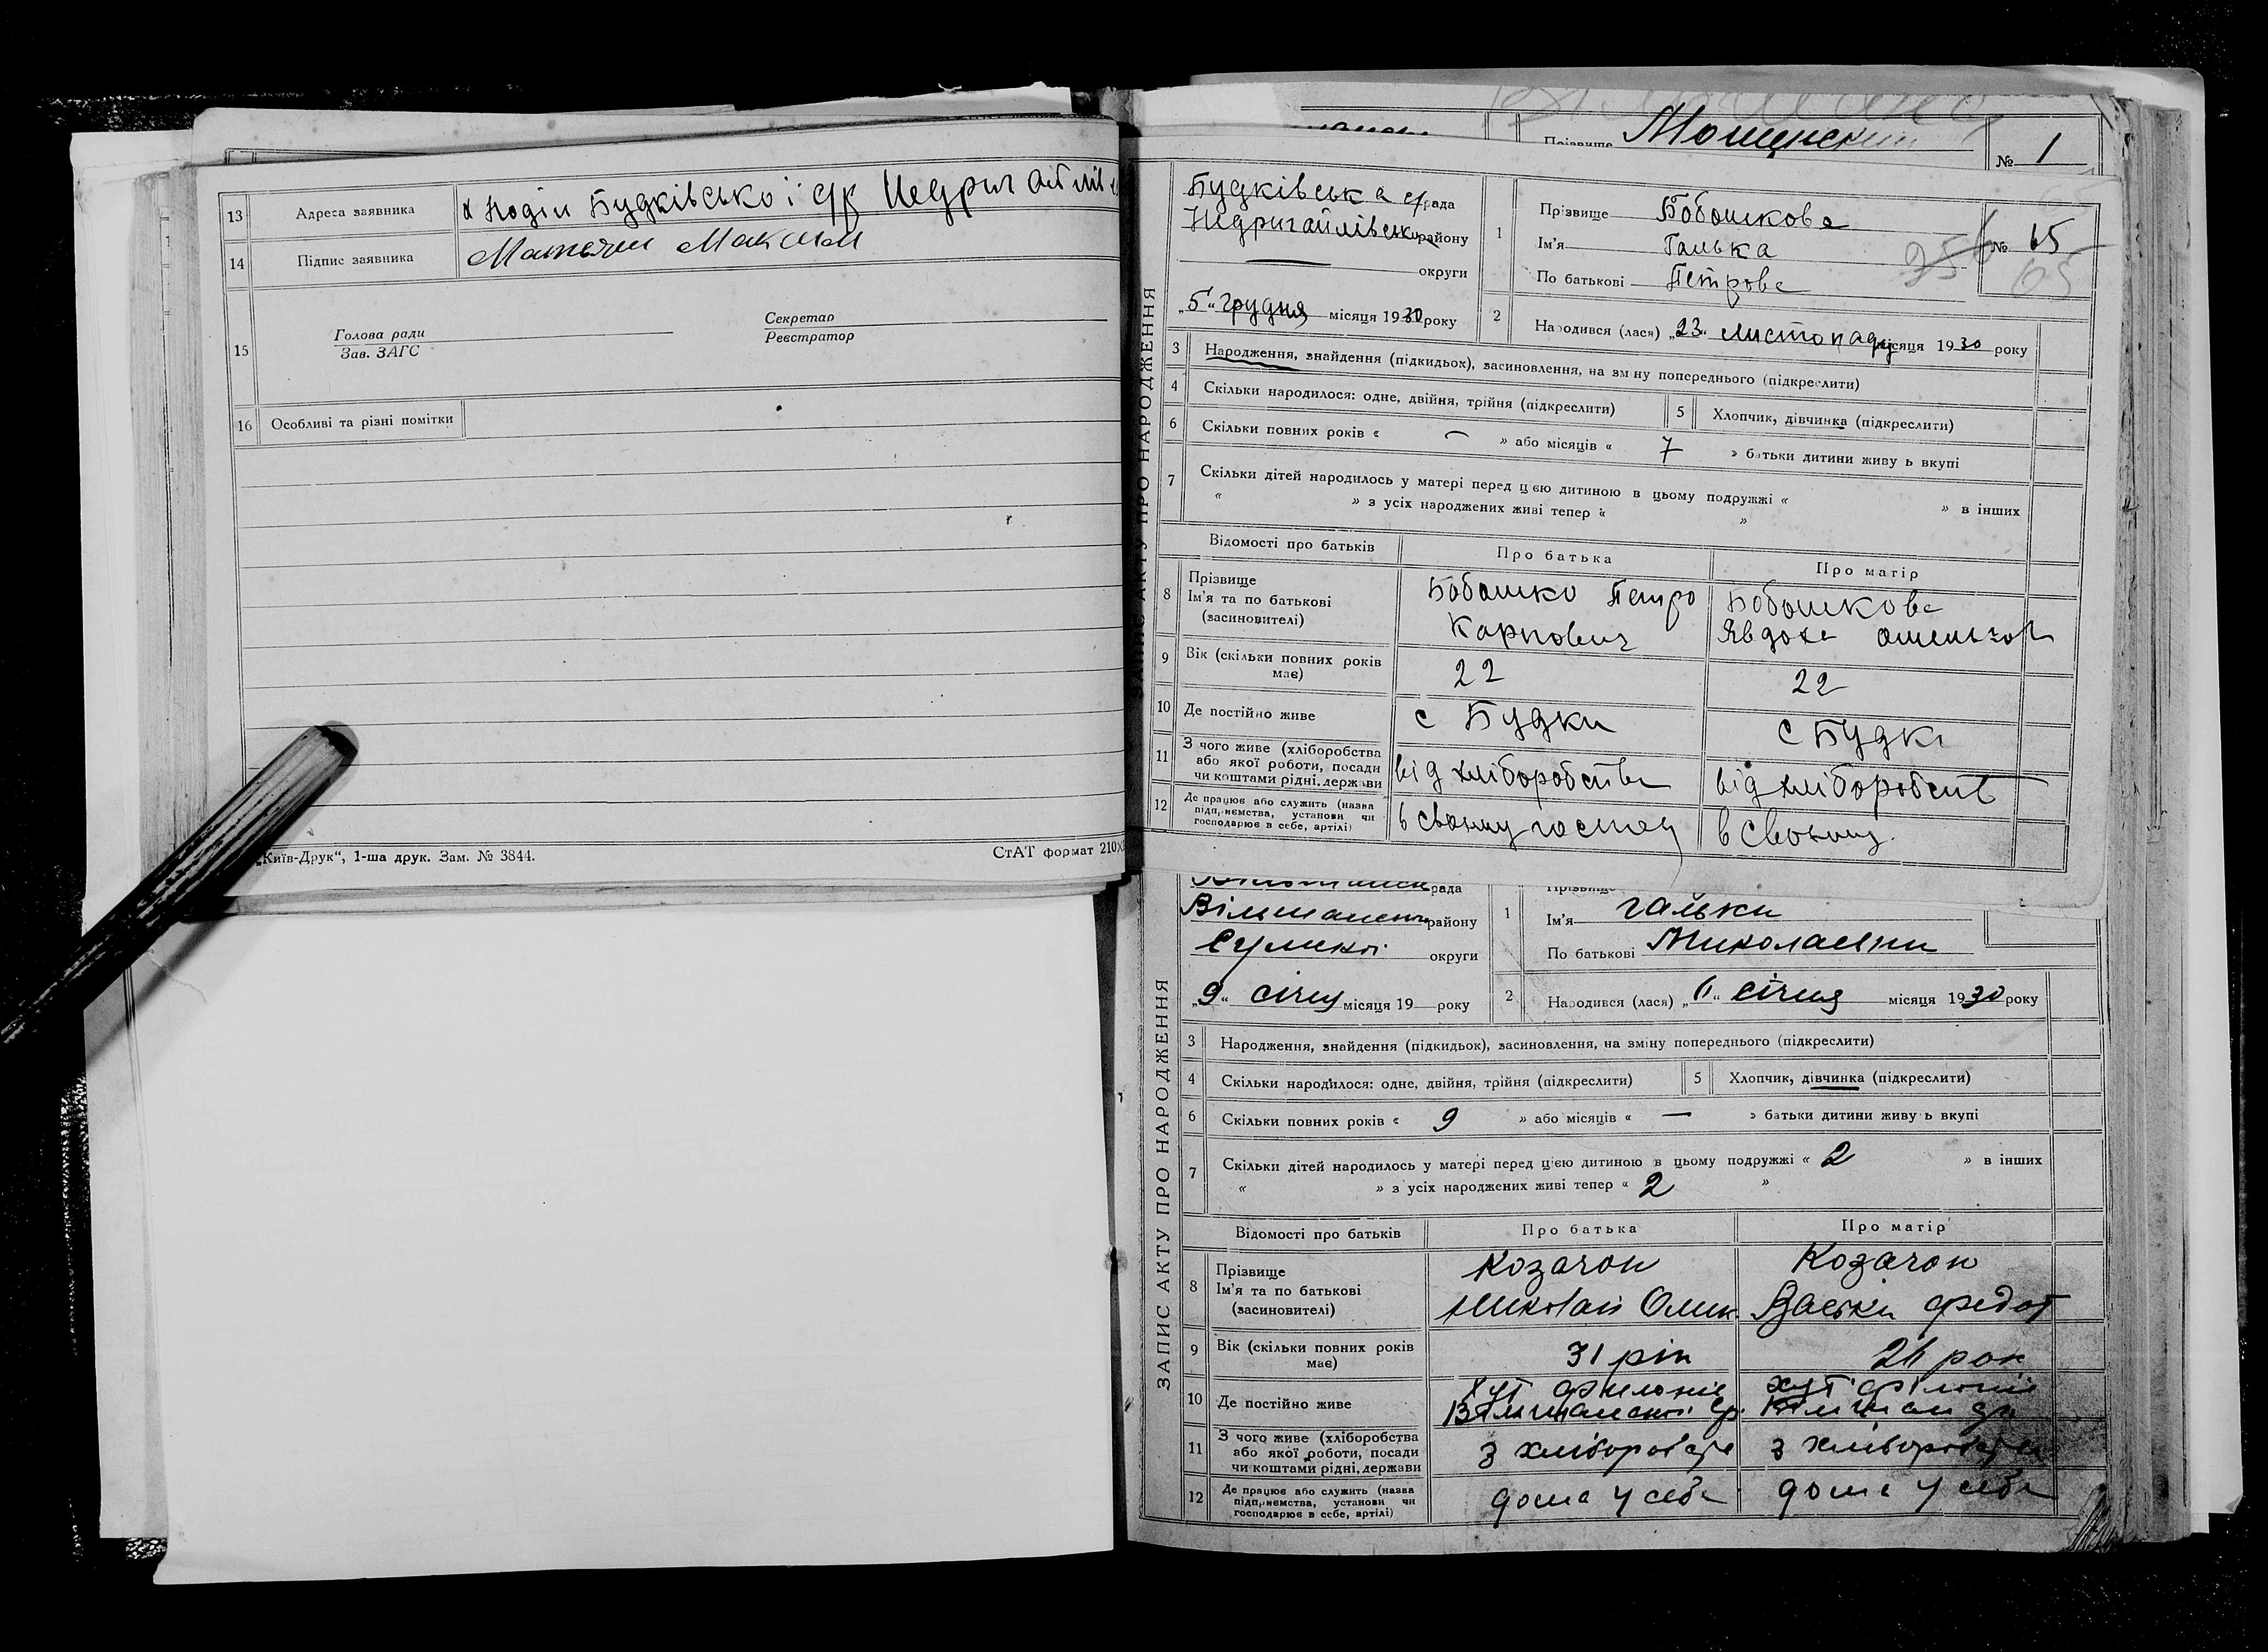 13 Адреса заявника х Поділ Будківської с/р Недригайлів
14 Підпис заявника Матяш Максим
15 Голова ради
Зав. ЗАГС
Секретар
Реєстратор
16 Особливі та різні помітки
„Київ-Друк“, 1-ша друк. Зам. № 3844.
СтАТ формат 210х
Прізвище Мощинский
№ 1
ЗАПИС АКТУ ПРО НАРОДЖЕННЯ
Будківська с/рада
Недригайлівсько району
округи
„5“ Грудня місяця 1930 року
1 Прізвище Бобошкова
Ім'я Галька
По батькові Петрова
№ 65
95
65
2 Народився (лася) „23“ листопаду місяця 1930 року
3 Народження, знайдення (підкидьок), засиновлення, на зміну попереднього (підкреслити)
4 Скільки народилося: одне, двійня, трійня (підкреслити)
5 Хлопчик, дівчинка (підкреслити)
6 Скільки повних років « — » або місяців « 7 » батьки дитини живу ь вкупі
7 Скільки дітей народилось у матері перед цією дитиною в цьому подружжі « » в інших
« » з усіх народжених живі тепер « »
Відомості про батьків
Про батька
Про матір
8 Прізвище
Ім'я та по батькові
(засиновителі)
Бобошко Петро
Карпович
Бобошкова
Явдоха
9 Вік (скільки повних років
має)
22
22
10 Де постійно живе
с Будки
с Будки
11 З чого живе (хліборобства
або якої роботи, посади
чи коштами рідні, держави
від хліборобства
від хліборобств
12 Де працює або служить (назва
підприємства, установи чи
господарює в себе, артілі)
в своєму господ
в своєму
ЗАПИС АКТУ ПРО НАРОДЖЕННЯ
рада
Вільшанськ району
Сумської округи
„9“ січня місяця 19 року
1 Прізвище
Ім'я Гальки
По батькові Миколаевни
2 Народився (лася) „6“ січня місяця 1930 року
3 Народження, знайдення (підкидьок), засиновлення, на зміну попереднього (підкреслити)
4 Скільки народилося: одне, двійня, трійня (підкреслити)
5 Хлопчик, дівчинка (підкреслити)
6 Скільки повних років « 9 » або місяців « — » батьки дитини живу ь вкупі
7 Скільки дітей народилось у матері перед цією дитиною в цьому подружжі « 2 » в інших
« » з усіх народжених живі тепер « 2 »
Відомості про батьків
Про батька
Про матір
8 Прізвище
Ім'я та по батькові
(засиновителі)
Козачок
Николай Олик.
Козачок
Федот
9 Вік (скільки повних років
має)
31 рік
26 рок
10 Де постійно живе
хут
Вільшанської ср.
хут
Вільшан
11 З чого живе (хліборобства
або якої роботи, посади
чи коштами рідні, держави
з хліборобства
з хліборобства
12 Де працює або служить (назва
підприємства, установи чи
господарює в себе, артілі)
дома у себе
дома у себе